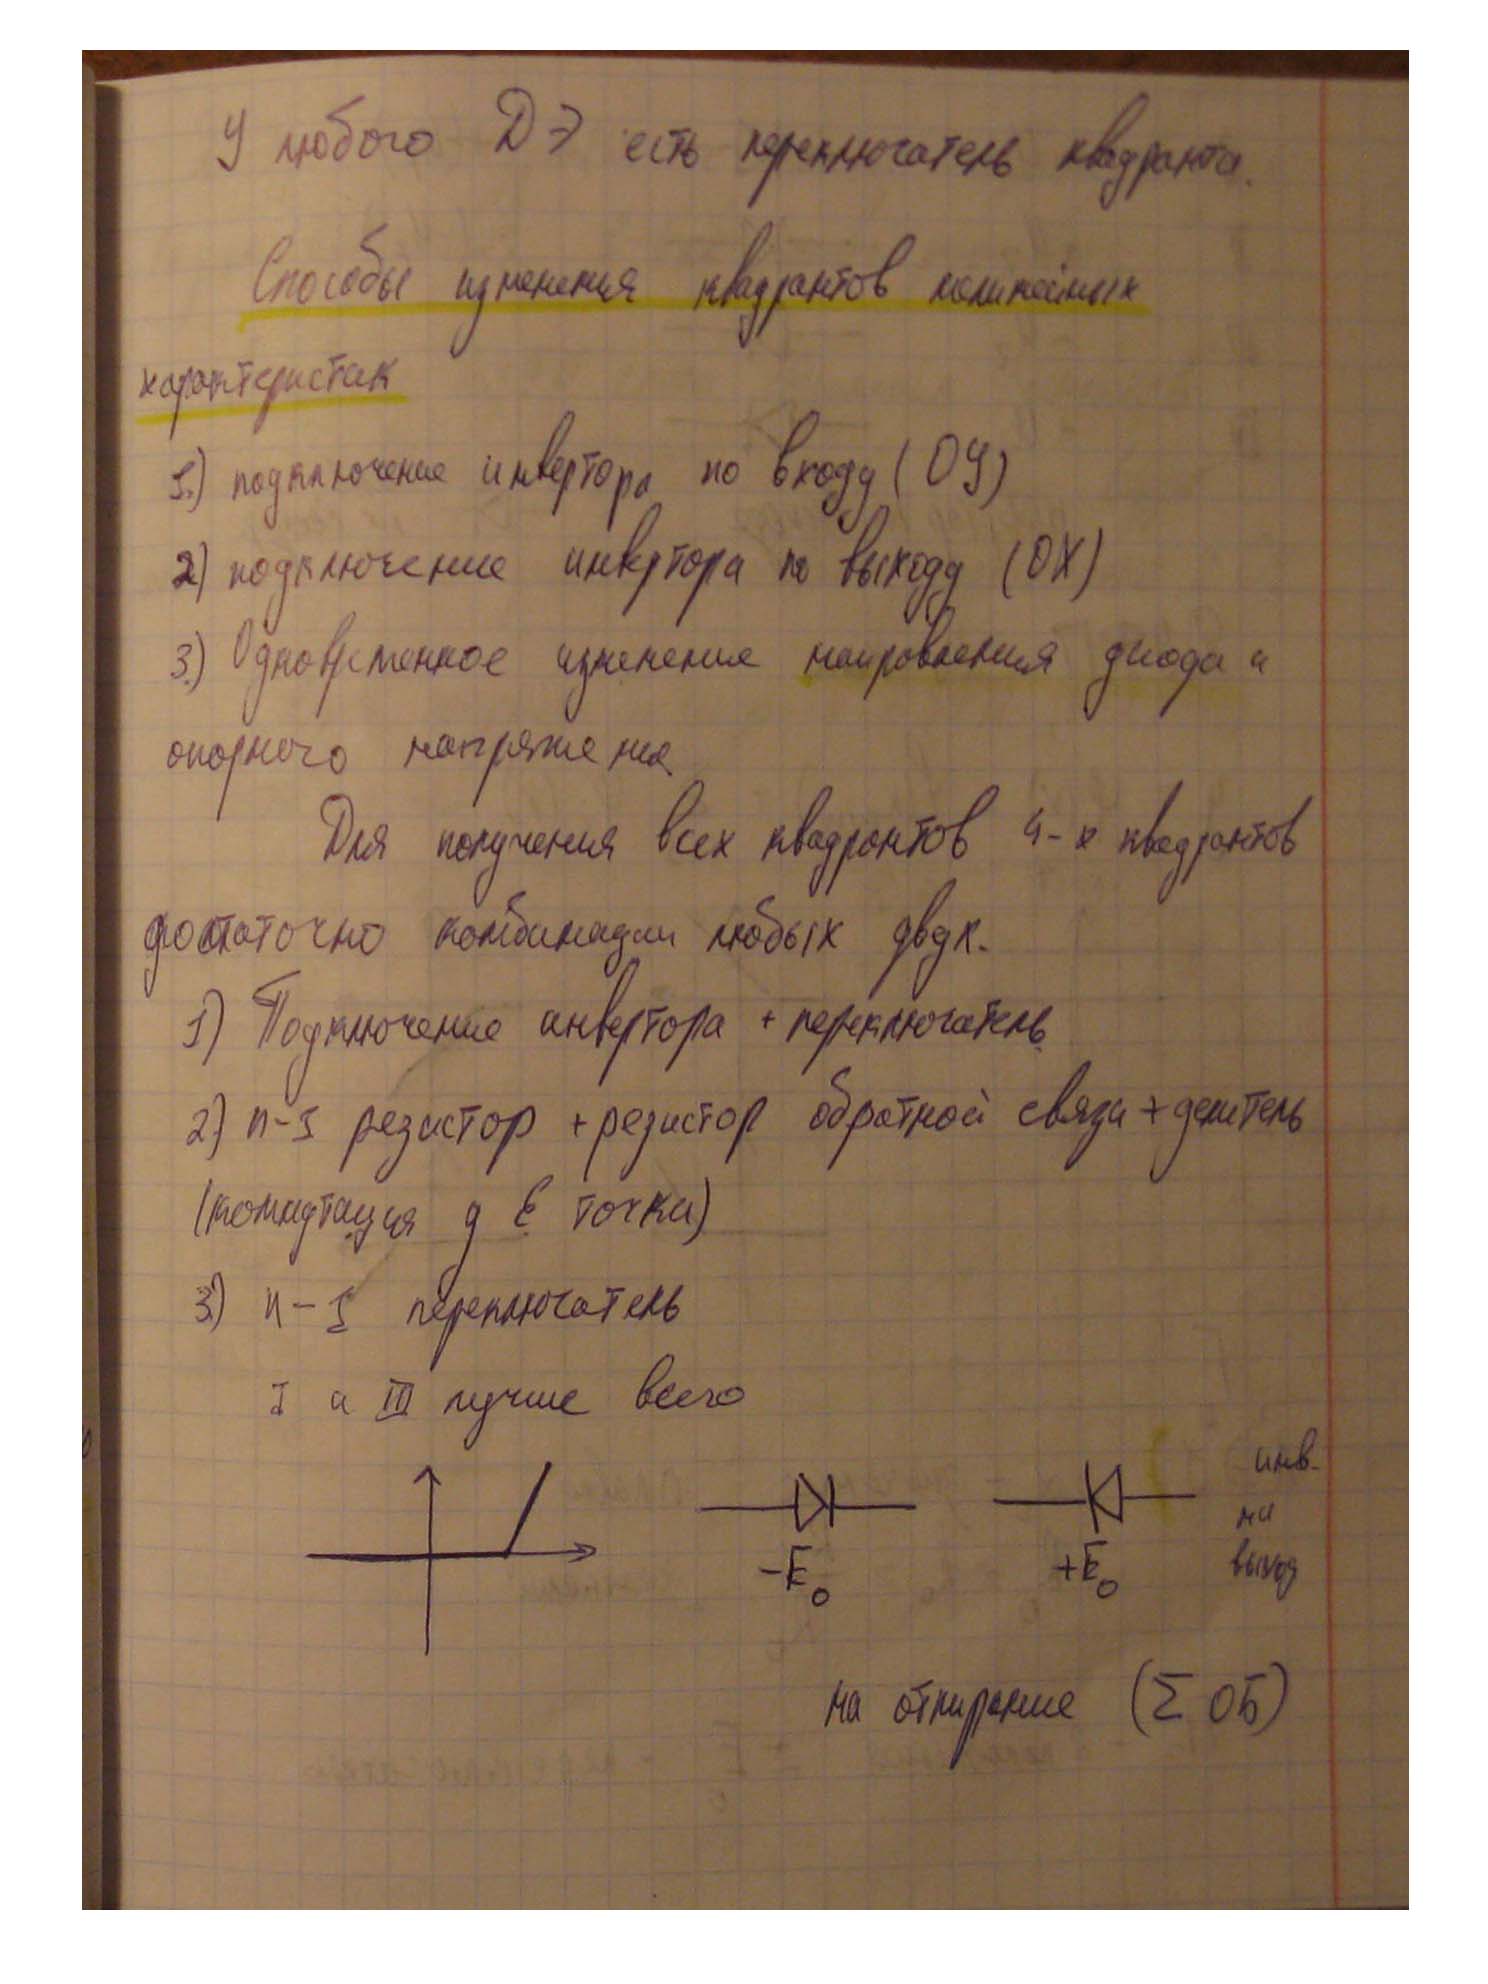 У любого ДЭ есть переключатель квадранта.
Способы изменения квадрантов нелинейных
характеристик
1.) подключение инвертора по входу (ОУ)
2) подключение инвертора по выходу (ОХ)
3.) Одновременное изменение направления диода и
опорного напряжения.
Для получения всех квадрантов 4-х квадрантов
достаточно комбинации любых двух.
1) Подключение инвертора + переключатель.
2) n-1 резистор + резистор обратной связи + делитель
(коммутация д Е точки)
3.) n-1 переключатель
I и III лучше всего
инв.
на
выход
-E₀
+E₀
на отпирание (Σ ОБ)